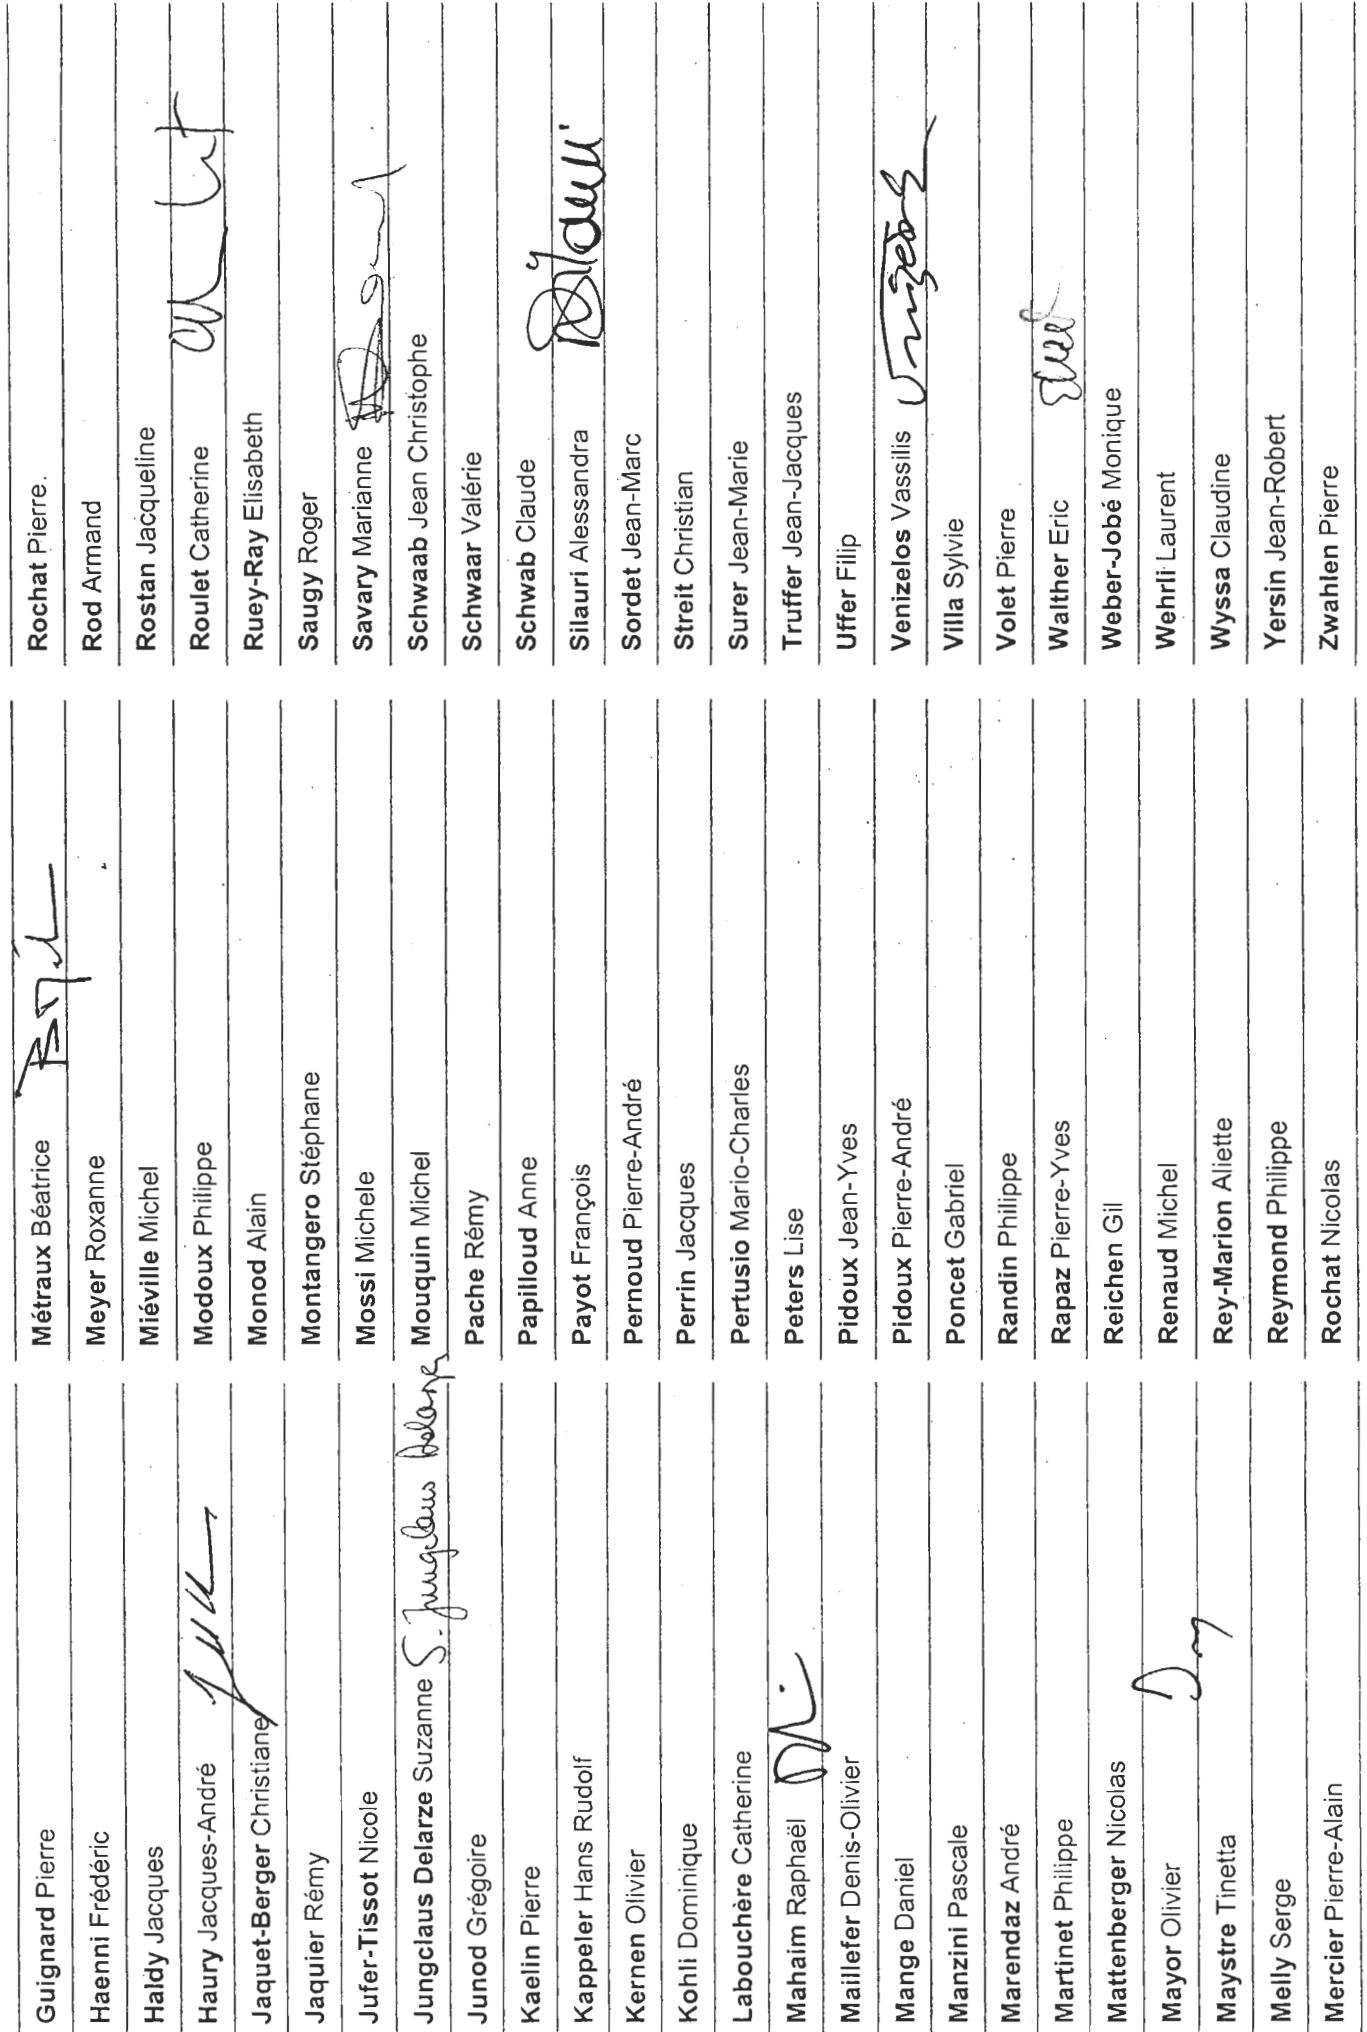 Guignard Pierre
Haenni Frédéric
Haldy Jacques
Haury Jacques-André
Jaquet-Berger Christiane
Jaquier Rémy
Jufer-Tissot Nicole
Jungclaus Delarze Suzanne S. Jungclaus Delarze
Junod Grégoire
Kaelin Pierre
Kappeler Hans Rudolf
Kernen Olivier
Kohli Dominique
Labouchère Catherine
Mahaim Raphaël
Maillefer Denis-Olivier
Mange Daniel
Manzini Pascale
Marendaz André
Martinet Philippe
Mattenberger Nicolas
Mayor Olivier
Maystre Tinetta
Melly Serge
Mercier Pierre-Alain
Métraux Béatrice
Meyer Roxanne
Miéville Michel
Modoux Philippe
Monod Alain
Montangero Stéphane
Mossi Michele
Mouquin Michel
Pache Rémy
Papilloud Anne
Payot François
Pernoud Pierre-André
Perrin Jacques
Pertusio Mario-Charles
Peters Lise
Pidoux Jean-Yves
Pidoux Pierre-André
Poncet Gabriel
Randin Philippe
Rapaz Pierre-Yves
Reichen Gil
Renaud Michel
Rey-Marion Aliette
Reymond Philippe
Rochat Nicolas
Rochat Pierre.
Rod Armand
Rostan Jacqueline
Roulet Catherine
Ruey-Ray Elisabeth
Saugy Roger
Savary Marianne
Schwaab Jean Christophe
Schwaar Valérie
Schwab Claude
Silauri Alessandra
Sordet Jean-Marc
Streit Christian
Surer Jean-Marie
Truffer Jean-Jacques
Uffer Filip
Venizelos Vassilis
Villa Sylvie
Volet Pierre
Walther Eric
Weber-Jobé Monique
Wehrli Laurent
Wyssa Claudine
Yersin Jean-Robert
Zwahlen Pierre